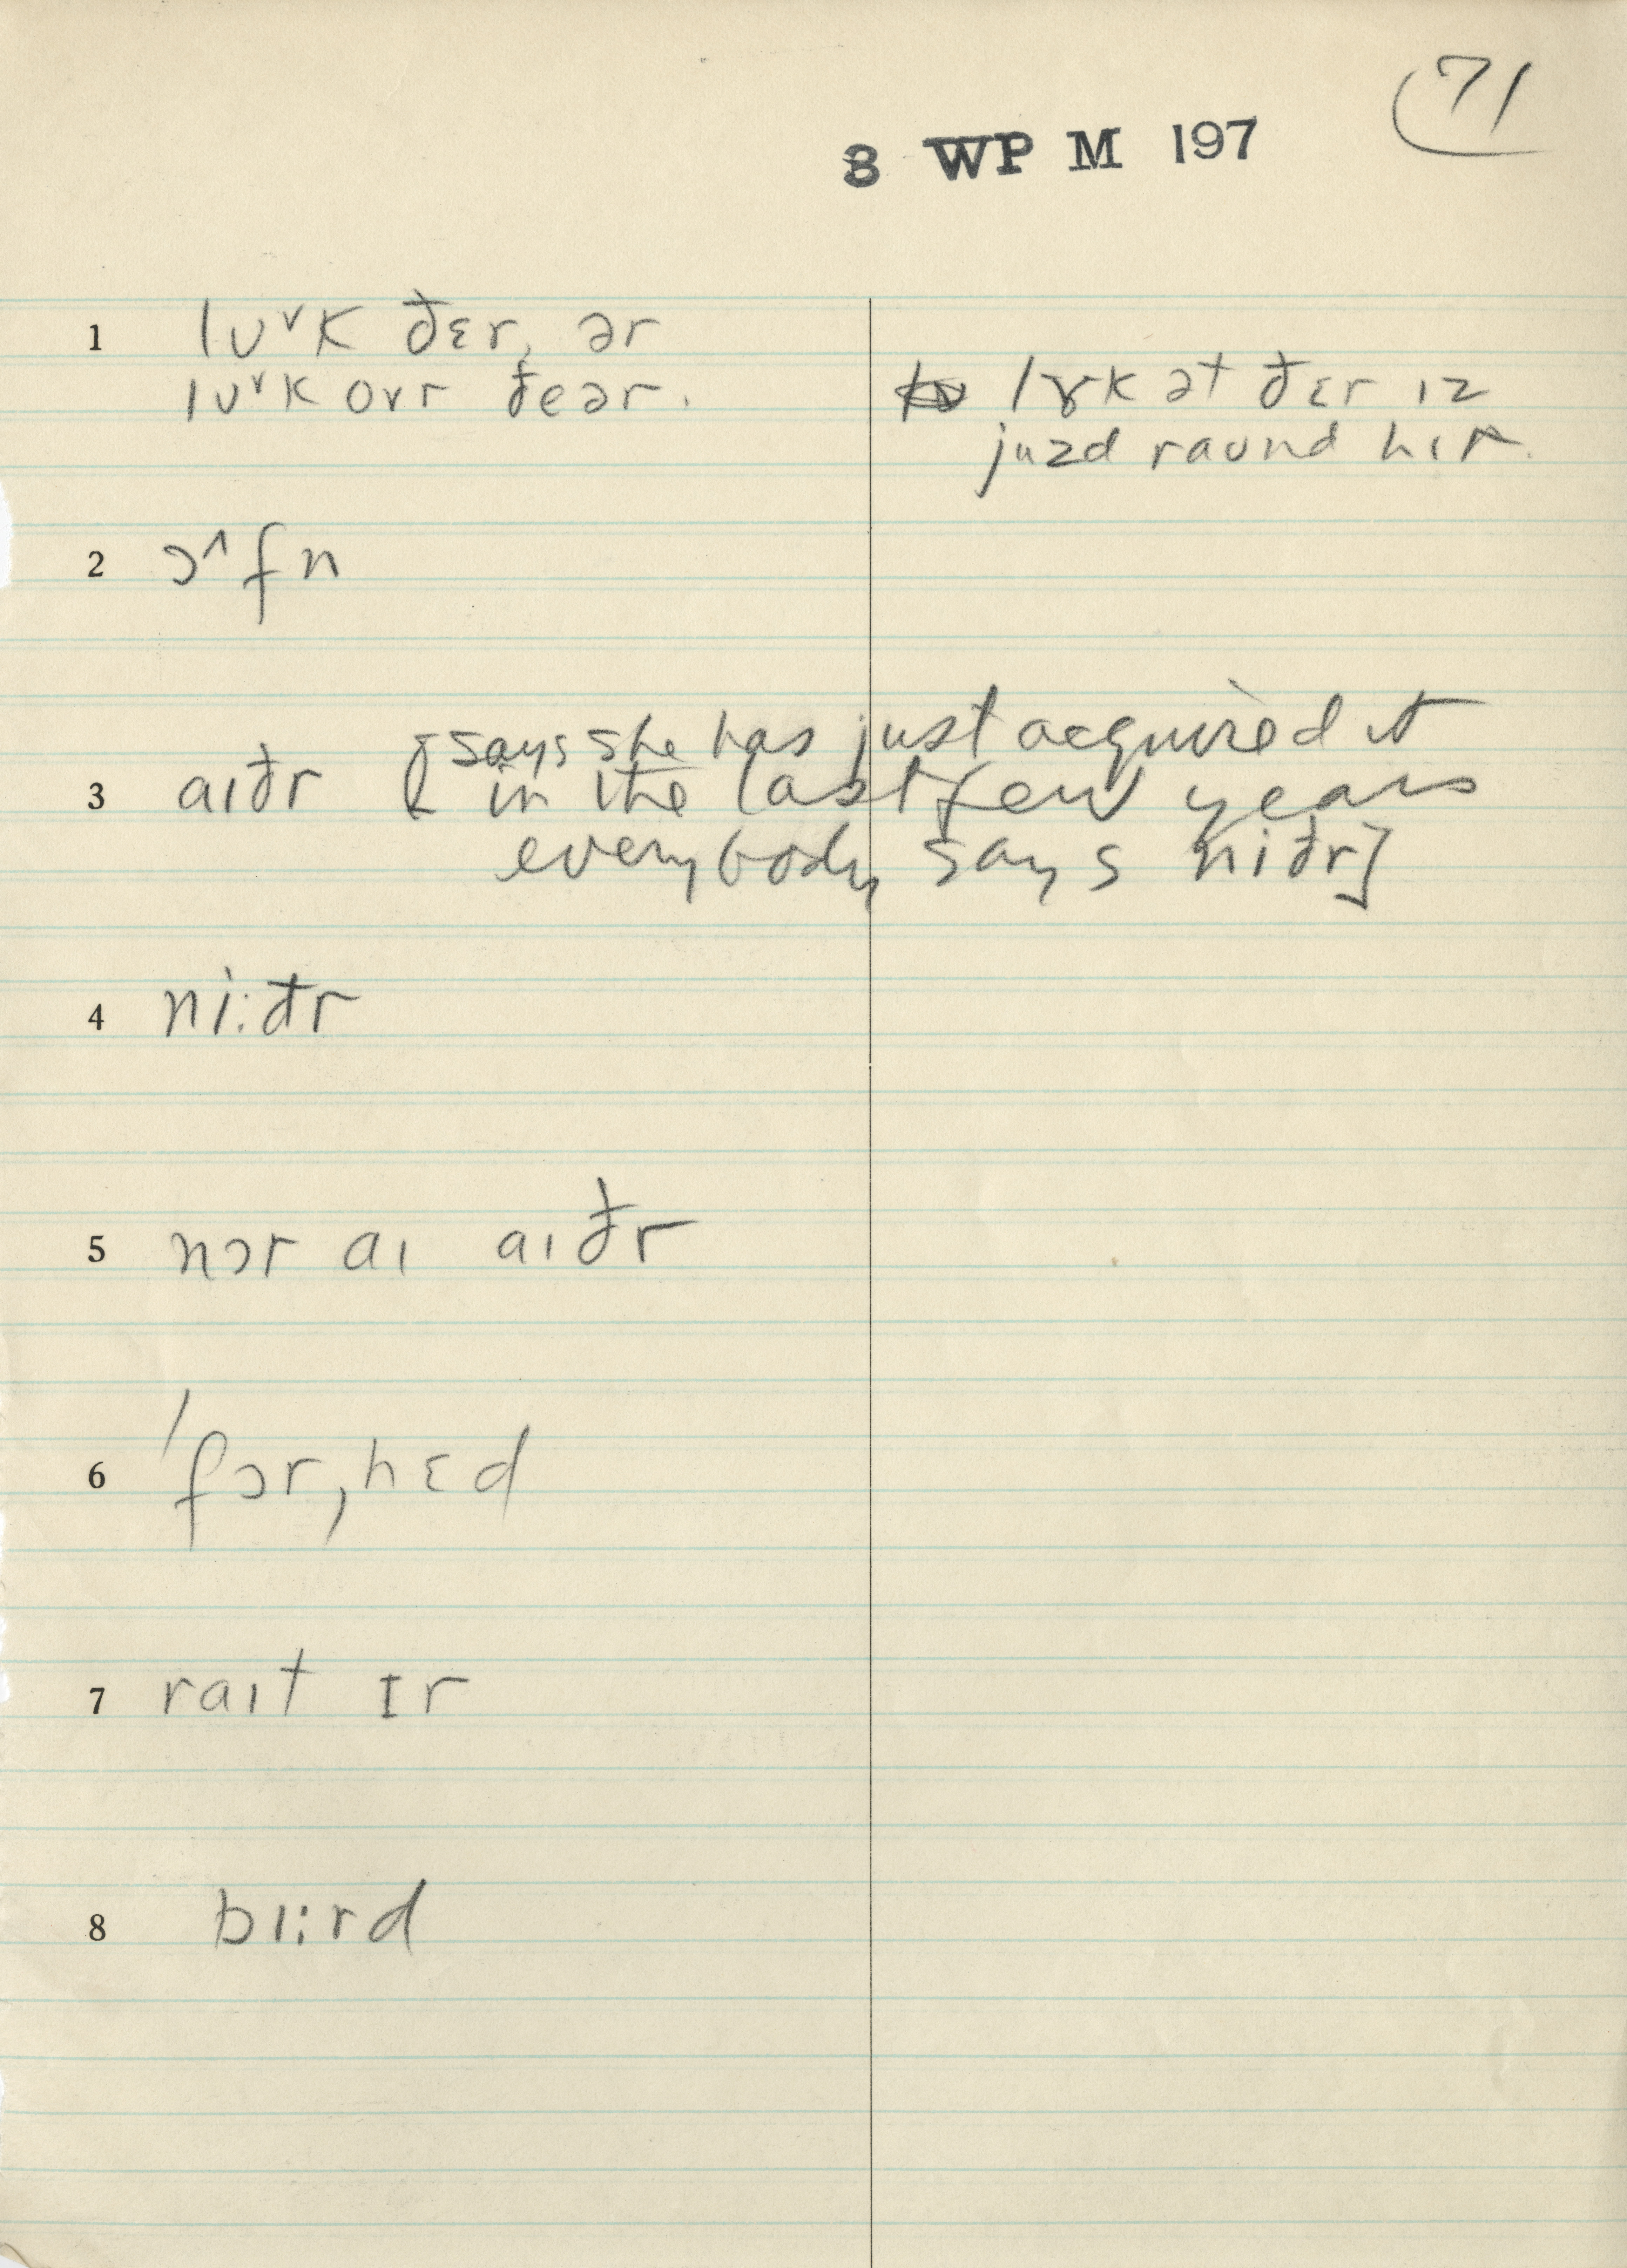 71
3 WP M 197
1 lu˅k ðɛr, ər
lu˅k ovr ðeər.
lɤk ət ðɛr ɪz
juzd raund hɪr.
2 ɔ˄fn
3 aɪðr [says she has just acquired it
in the last few years
everybody says niðr]
4 ni:ðr
5 nɔr aɪ aɪðr
6 'fɔr,hɛd
7 raɪt ɪr
8 bɪ:rd